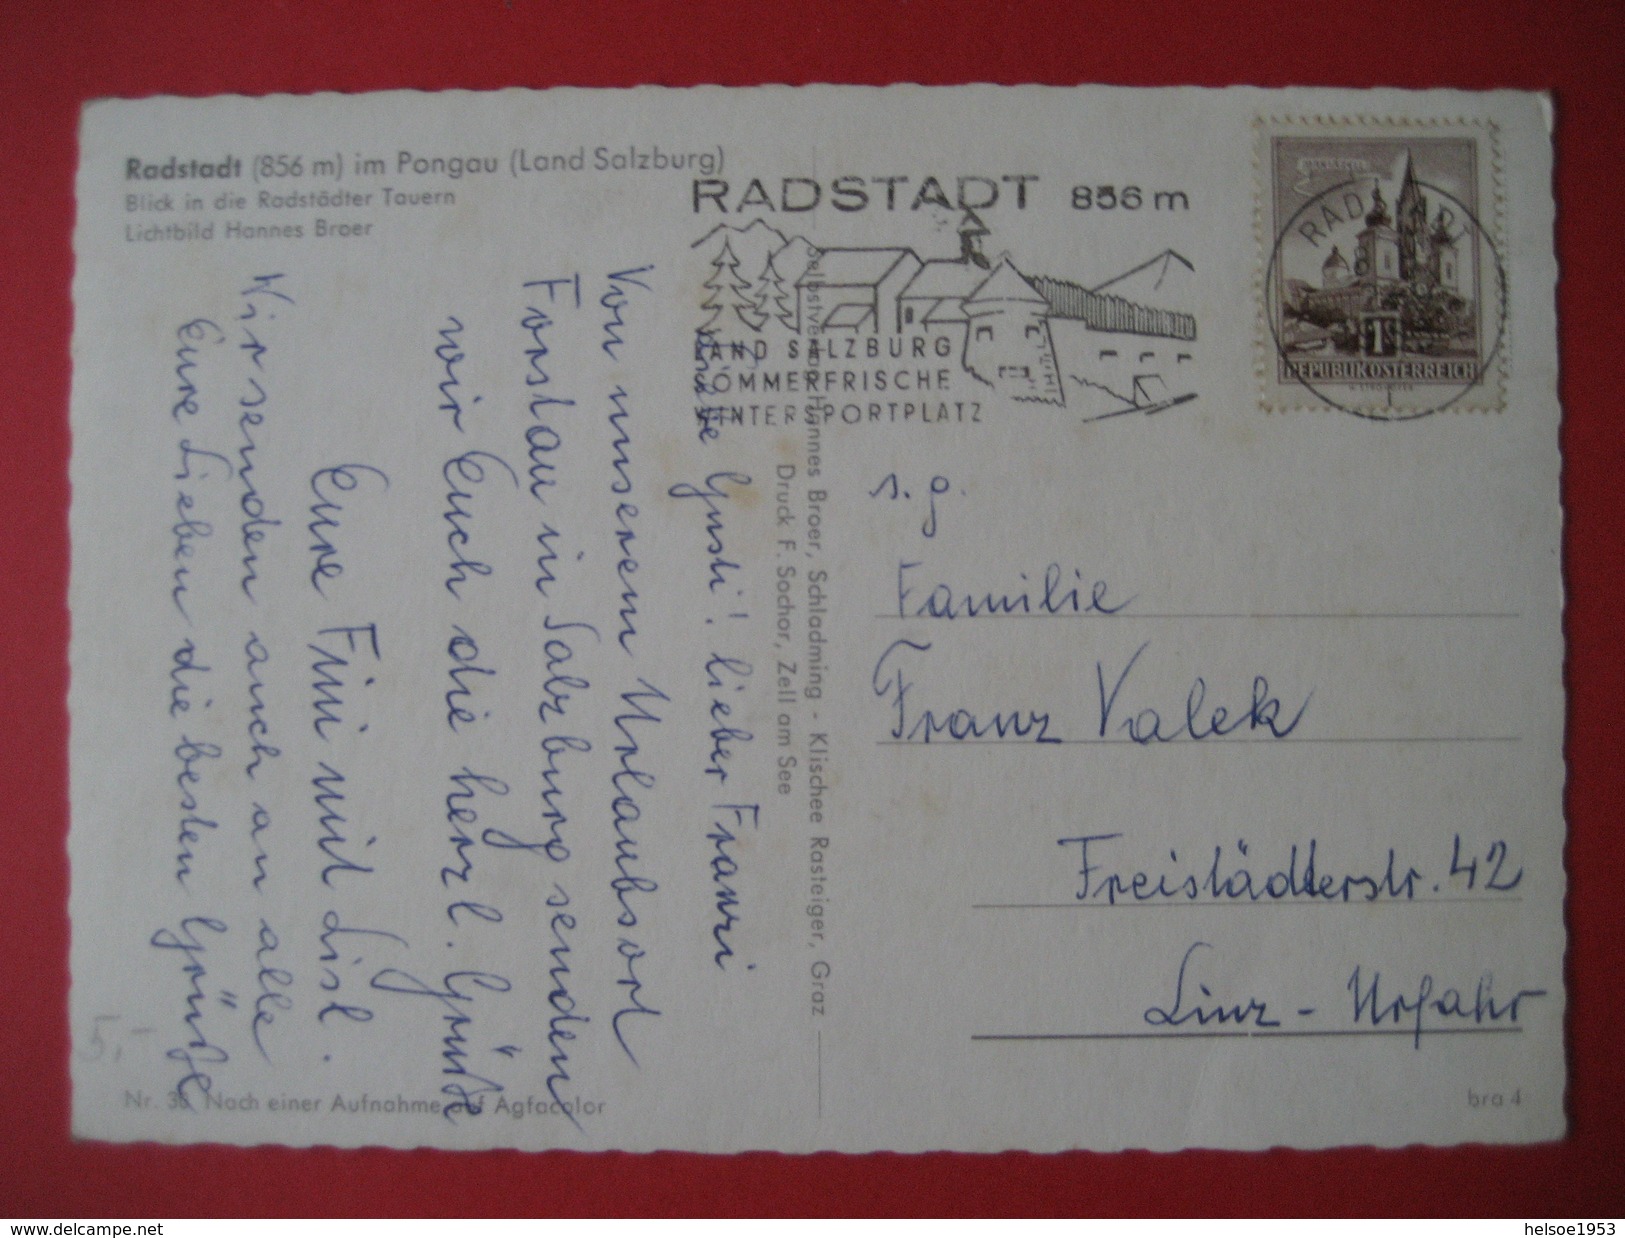 Radstadt (856 m) im Pongau (Land Salzburg)
Blick in die Radstädter Tauern
Lichtbild Hannes Broer
RADSTADT 856 m
LAND SALZBURG
SOMMERFRISCHE
WINTERSPORTPLATZ
RADSTADT
REPUBLIK ÖSTERREICH
Liebe Gusti! lieber Franzi
Von unserem Urlaubsort
Forstau in Salzburg senden
wir Euch die herzl. Grüße
Eure Fini mit Lisl.
Wir senden auch an alle
Eure Lieben die besten Grüße
Selbstverlag Hannes Broer, Schladming - Klischee Rasteiger, Graz
Druck F. Sochor, Zell am See
s. g.
Familie
Franz Valek
Freistädterstr. 42
Linz - Urfahr
5,-
Nach einer Aufnahme auf Agfacolor
bra 4
www.delcampe.net
helsoe1953